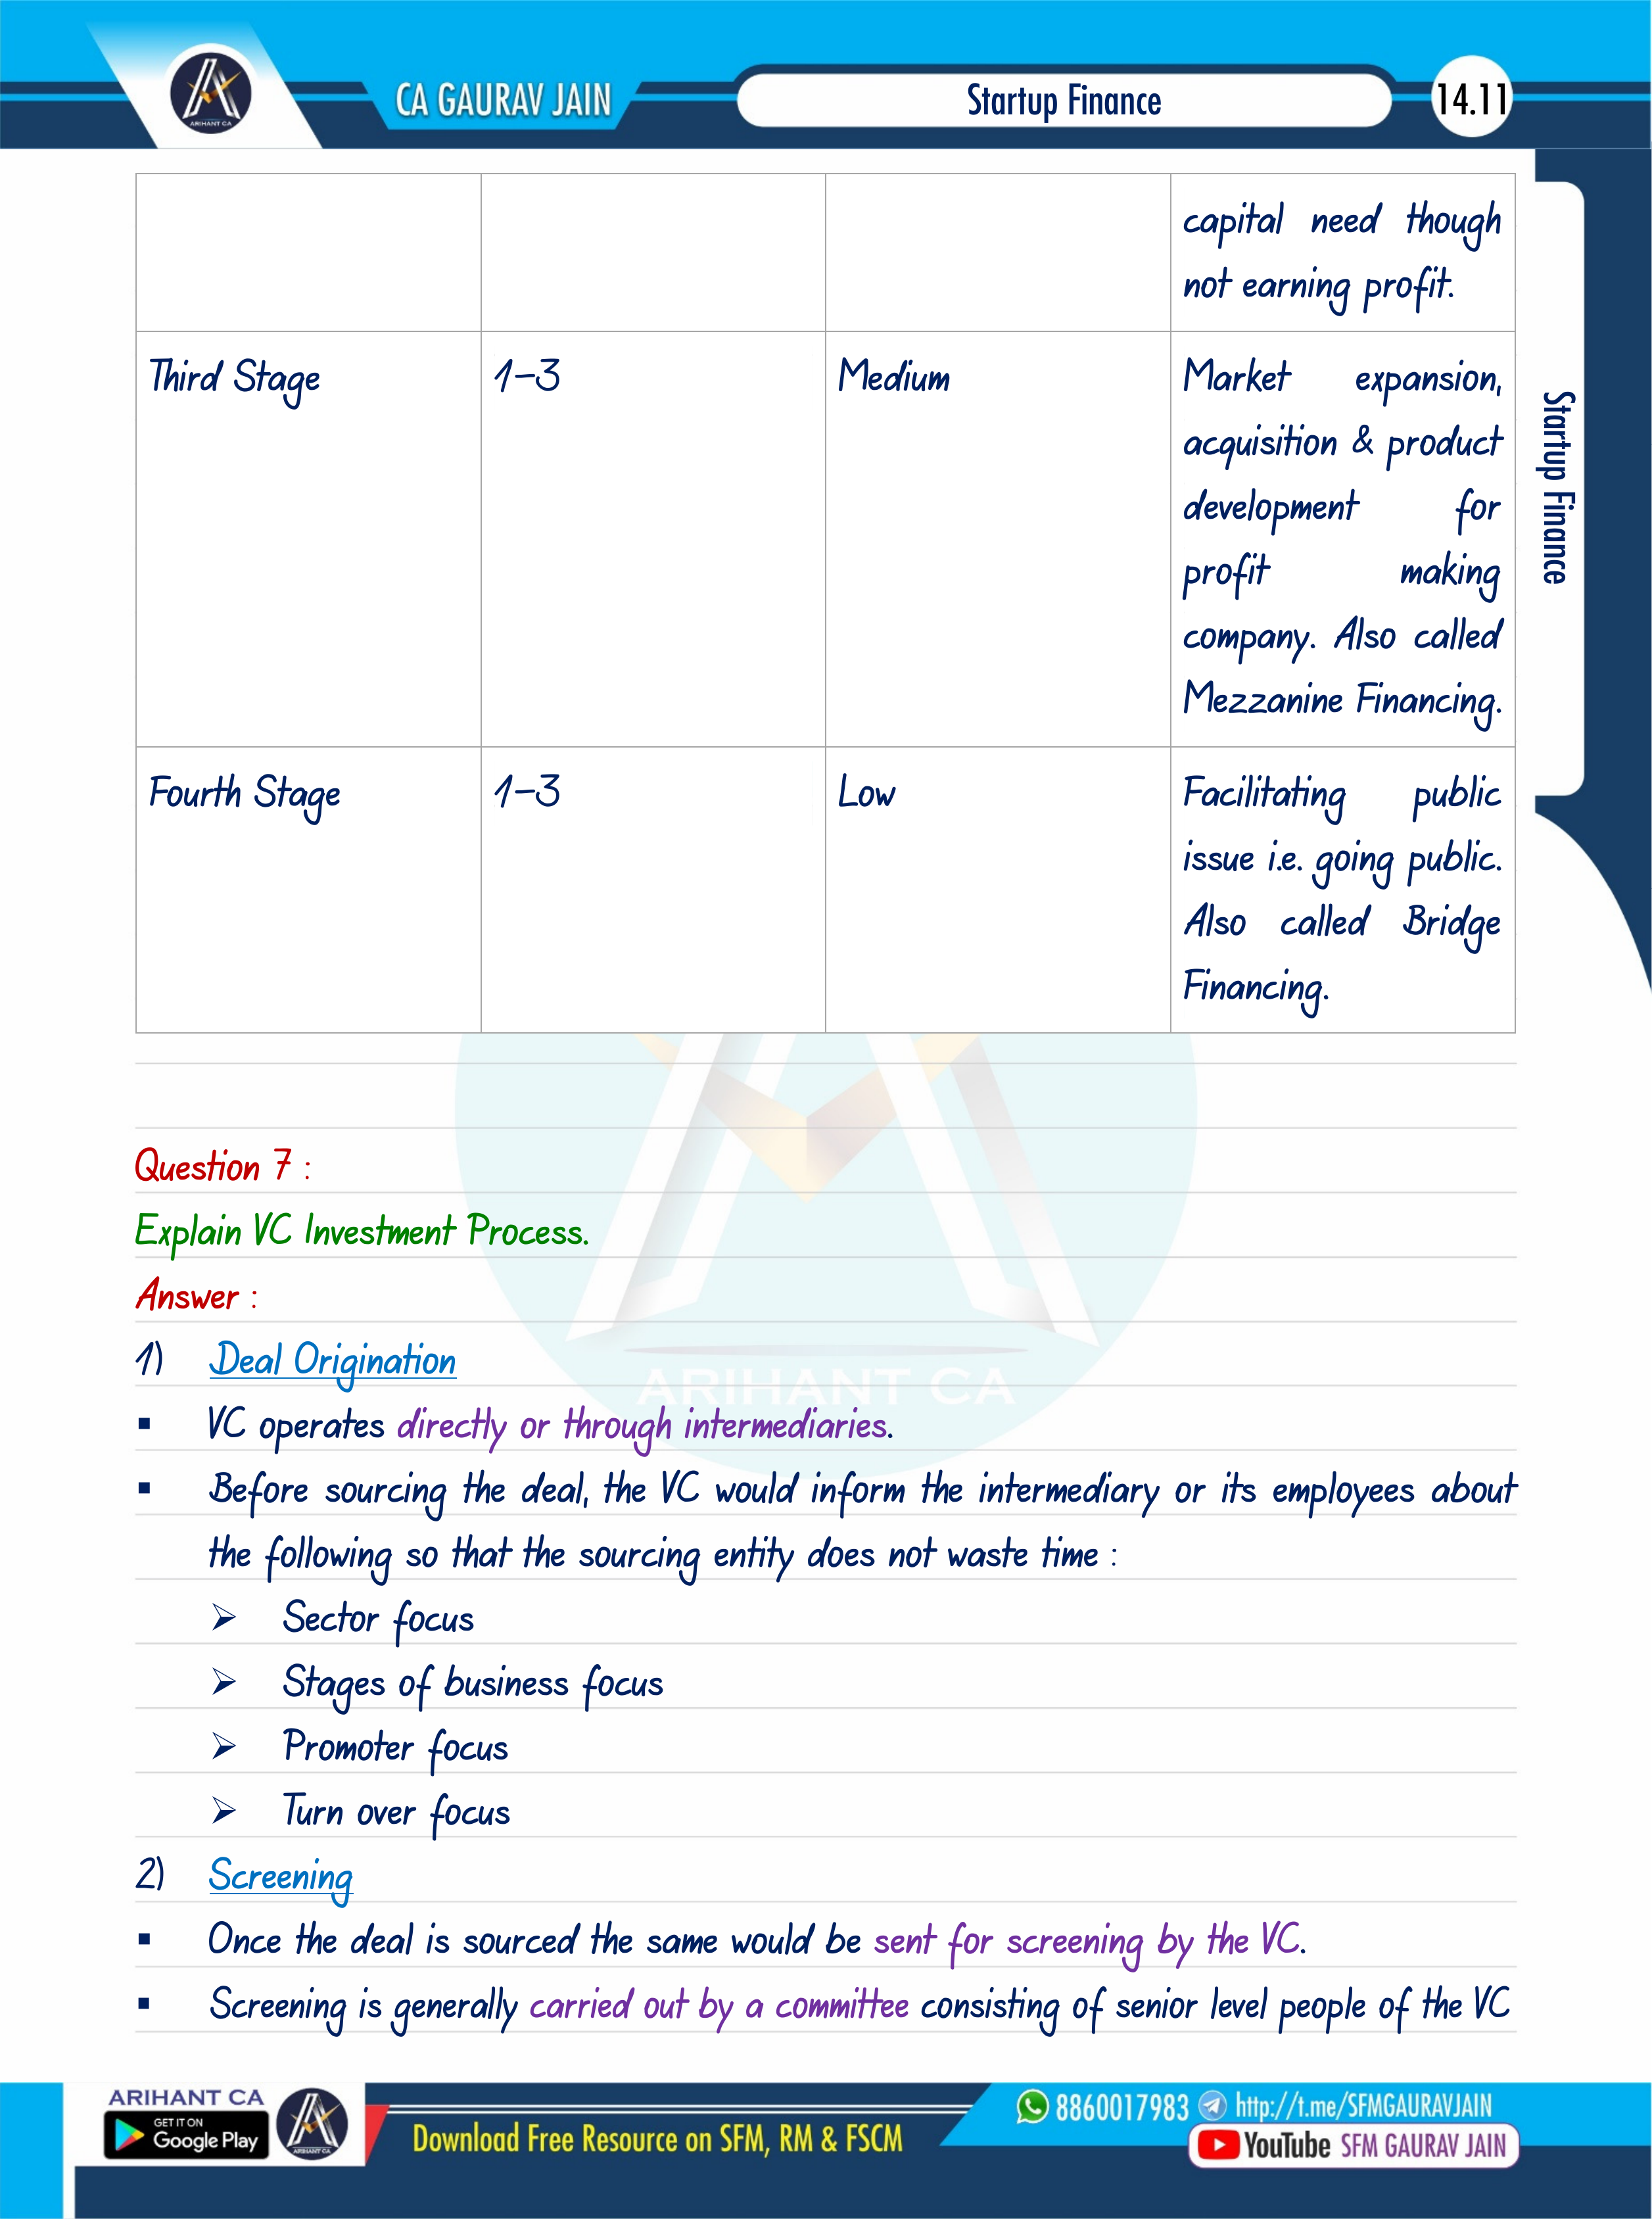 ARIHANT CA
CA GAURAV JAIN
Startup Finance
14.11
capital need though
not earning profit.
Third Stage
1-3
Medium
Market expansion,
acquisition & product
development for
profit making
company. Also called
Mezzanine Financing.
Fourth Stage
1-3
Low
Facilitating public
issue i.e. going public.
Also called Bridge
Financing.
Startup Finance
Question 7 :
Explain VC Investment Process.
Answer :
1) Deal Origination
ARIHANT CA
▪ VC operates directly or through intermediaries.
▪ Before sourcing the deal, the VC would inform the intermediary or its employees about
the following so that the sourcing entity does not waste time :
➢ Sector focus
➢ Stages of business focus
➢ Promoter focus
➢ Turn over focus
2) Screening
▪ Once the deal is sourced the same would be sent for screening by the VC.
▪ Screening is generally carried out by a committee consisting of senior level people of the VC
ARIHANT CA
GET IT ON
Google Play
ARIHANT CA
Download Free Resource on SFM, RM & FSCM
8860017983 http://t.me/SFMGAURAVJAIN
YouTube SFM GAURAV JAIN